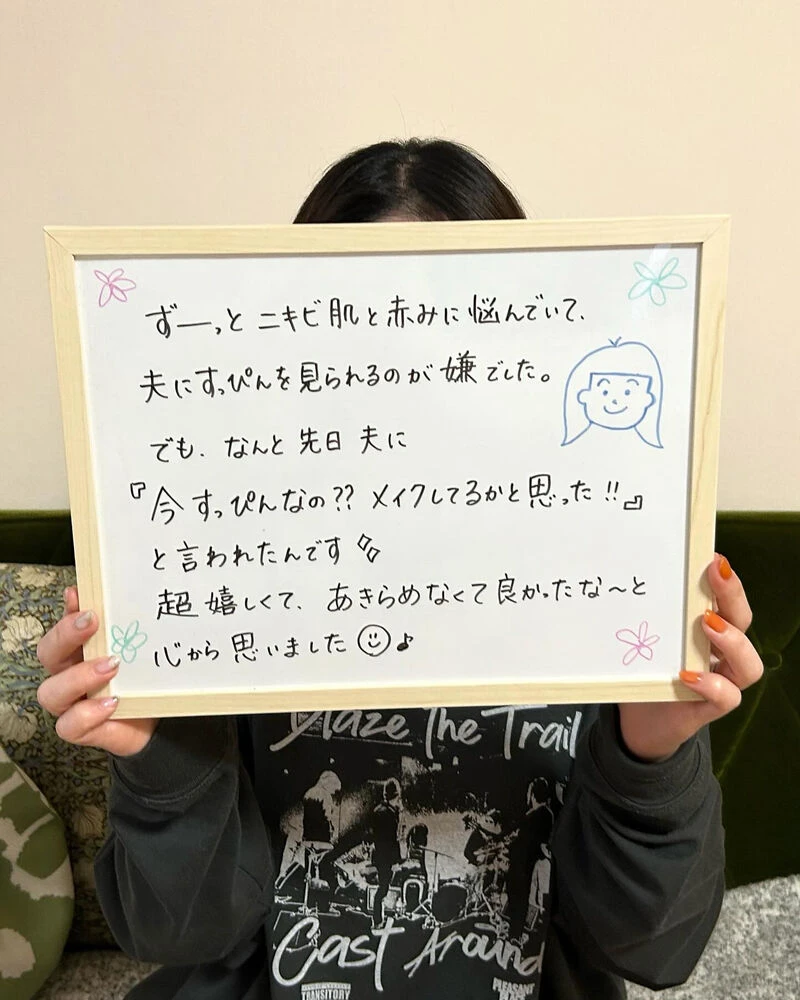 ずーっと ニキビ肌と赤みに悩んでいて、
夫にすっぴんを見られるのが嫌でした。
でも、なんと先日 夫に
『今すっぴんなの?? メイクしてるかと思った!!』
と言われたんです
超嬉しくて、あきらめなくて良かったな〜と
心から思いました☺♪
Blaze The Trail
Cast Around
TRANSITORY
PLEASANT